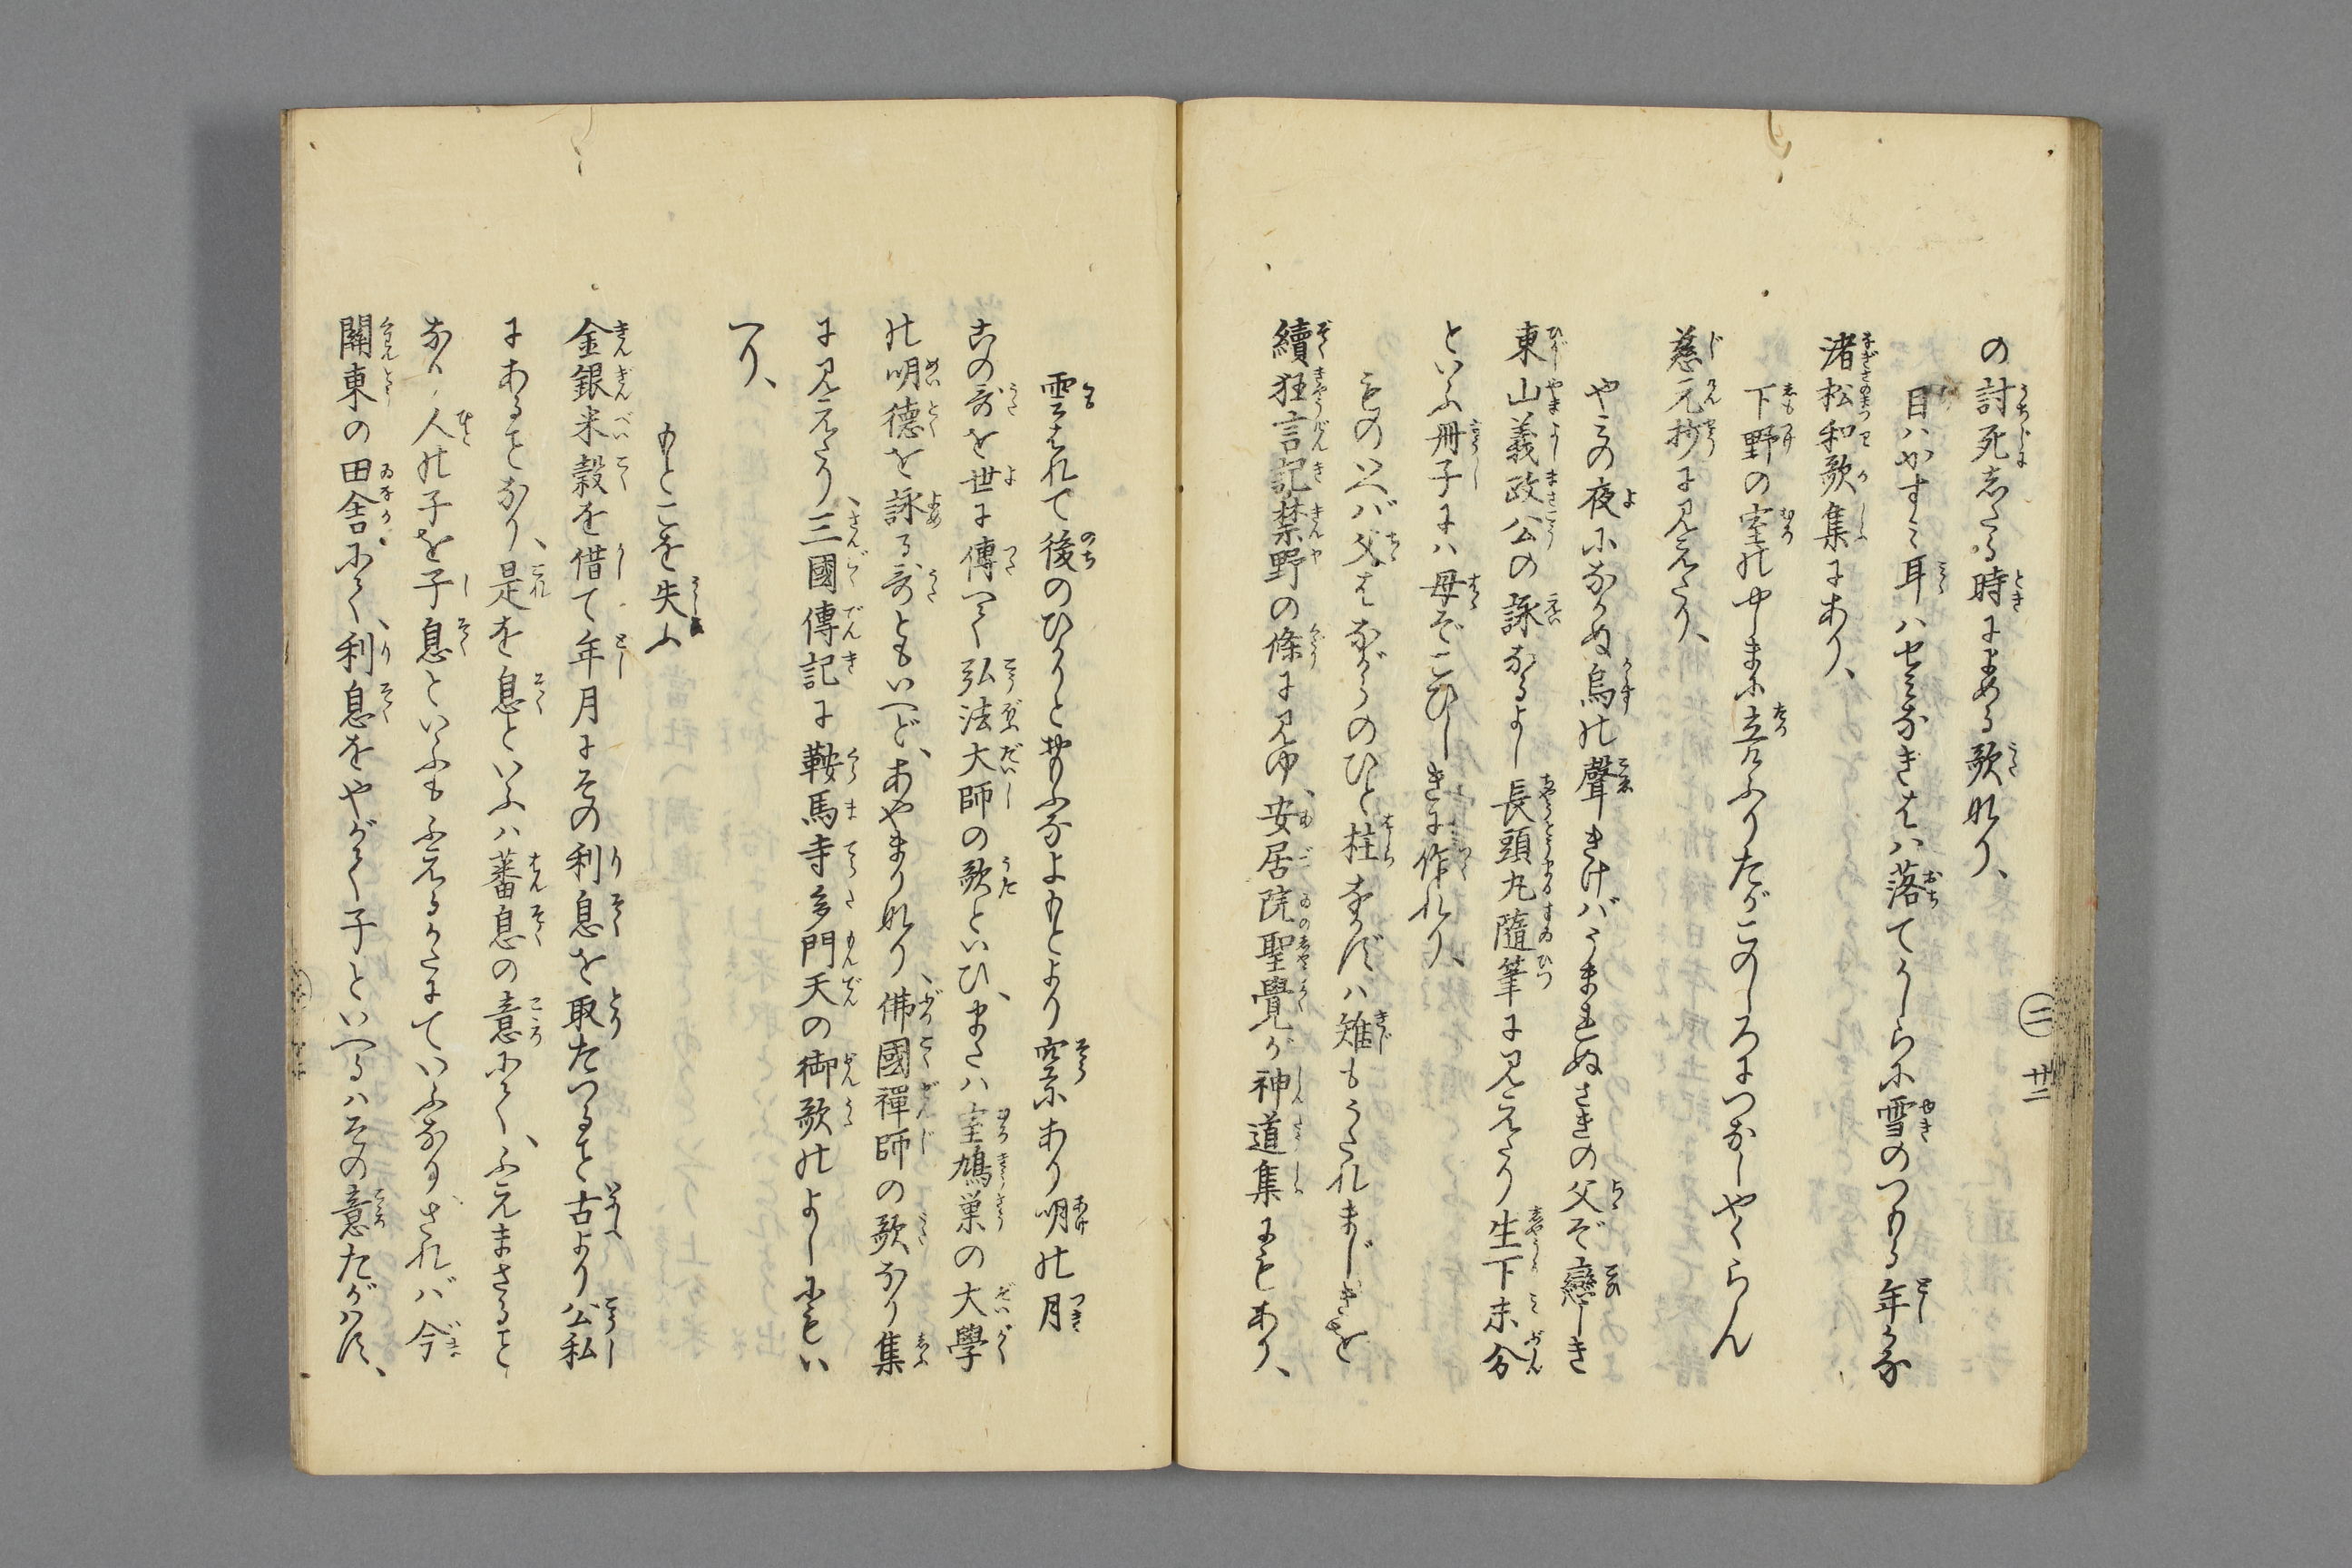 の討死志たる時によめる歌なり、
目ハかすミ耳ハせミなきはハ落てかしらに雪のつもる年かな
渚松和歌集にあり、
下野の室のやしまに立けふりたがこのしろにつなしやくらん
慈元抄に見えたり、
やミの夜になかぬ烏の聲きけバうまれぬさきの父ぞ戀しき
東山義政公の詠なるよし長頭丸隨筆に見えたり生下未分
といふ冊子にハ母ぞこひしきに作れり、
ものいへバ父はながらのひと柱なかずハ雉もうたれまじきを
續狂言記禁野の條に見ゆ、安居院聖覺が神道集にもあり、
二
廿二
雲はれて後のひかりとおもふなよもとより空にあり明の月
古の哥を世に傳へて弘法大師の歌といひ、またハ室鳩巣の大學
の明德を詠る哥ともいへど、あやまりなり、佛國禪師の歌なり集
に見えたり、三國傳記に鞍馬寺多門天の御歌のよしにもい
へり、
もとこを失ふ
金銀米穀を借て年月にその利息を取たつること古より公私
にあることなり、是を息といふハ蕃息の意にて、ふえまさること
なり、人の子を子息といふもふえるかたにていふなりされバ今
關東の田舎にて、利息をやがて子といへるハその意たがはず、